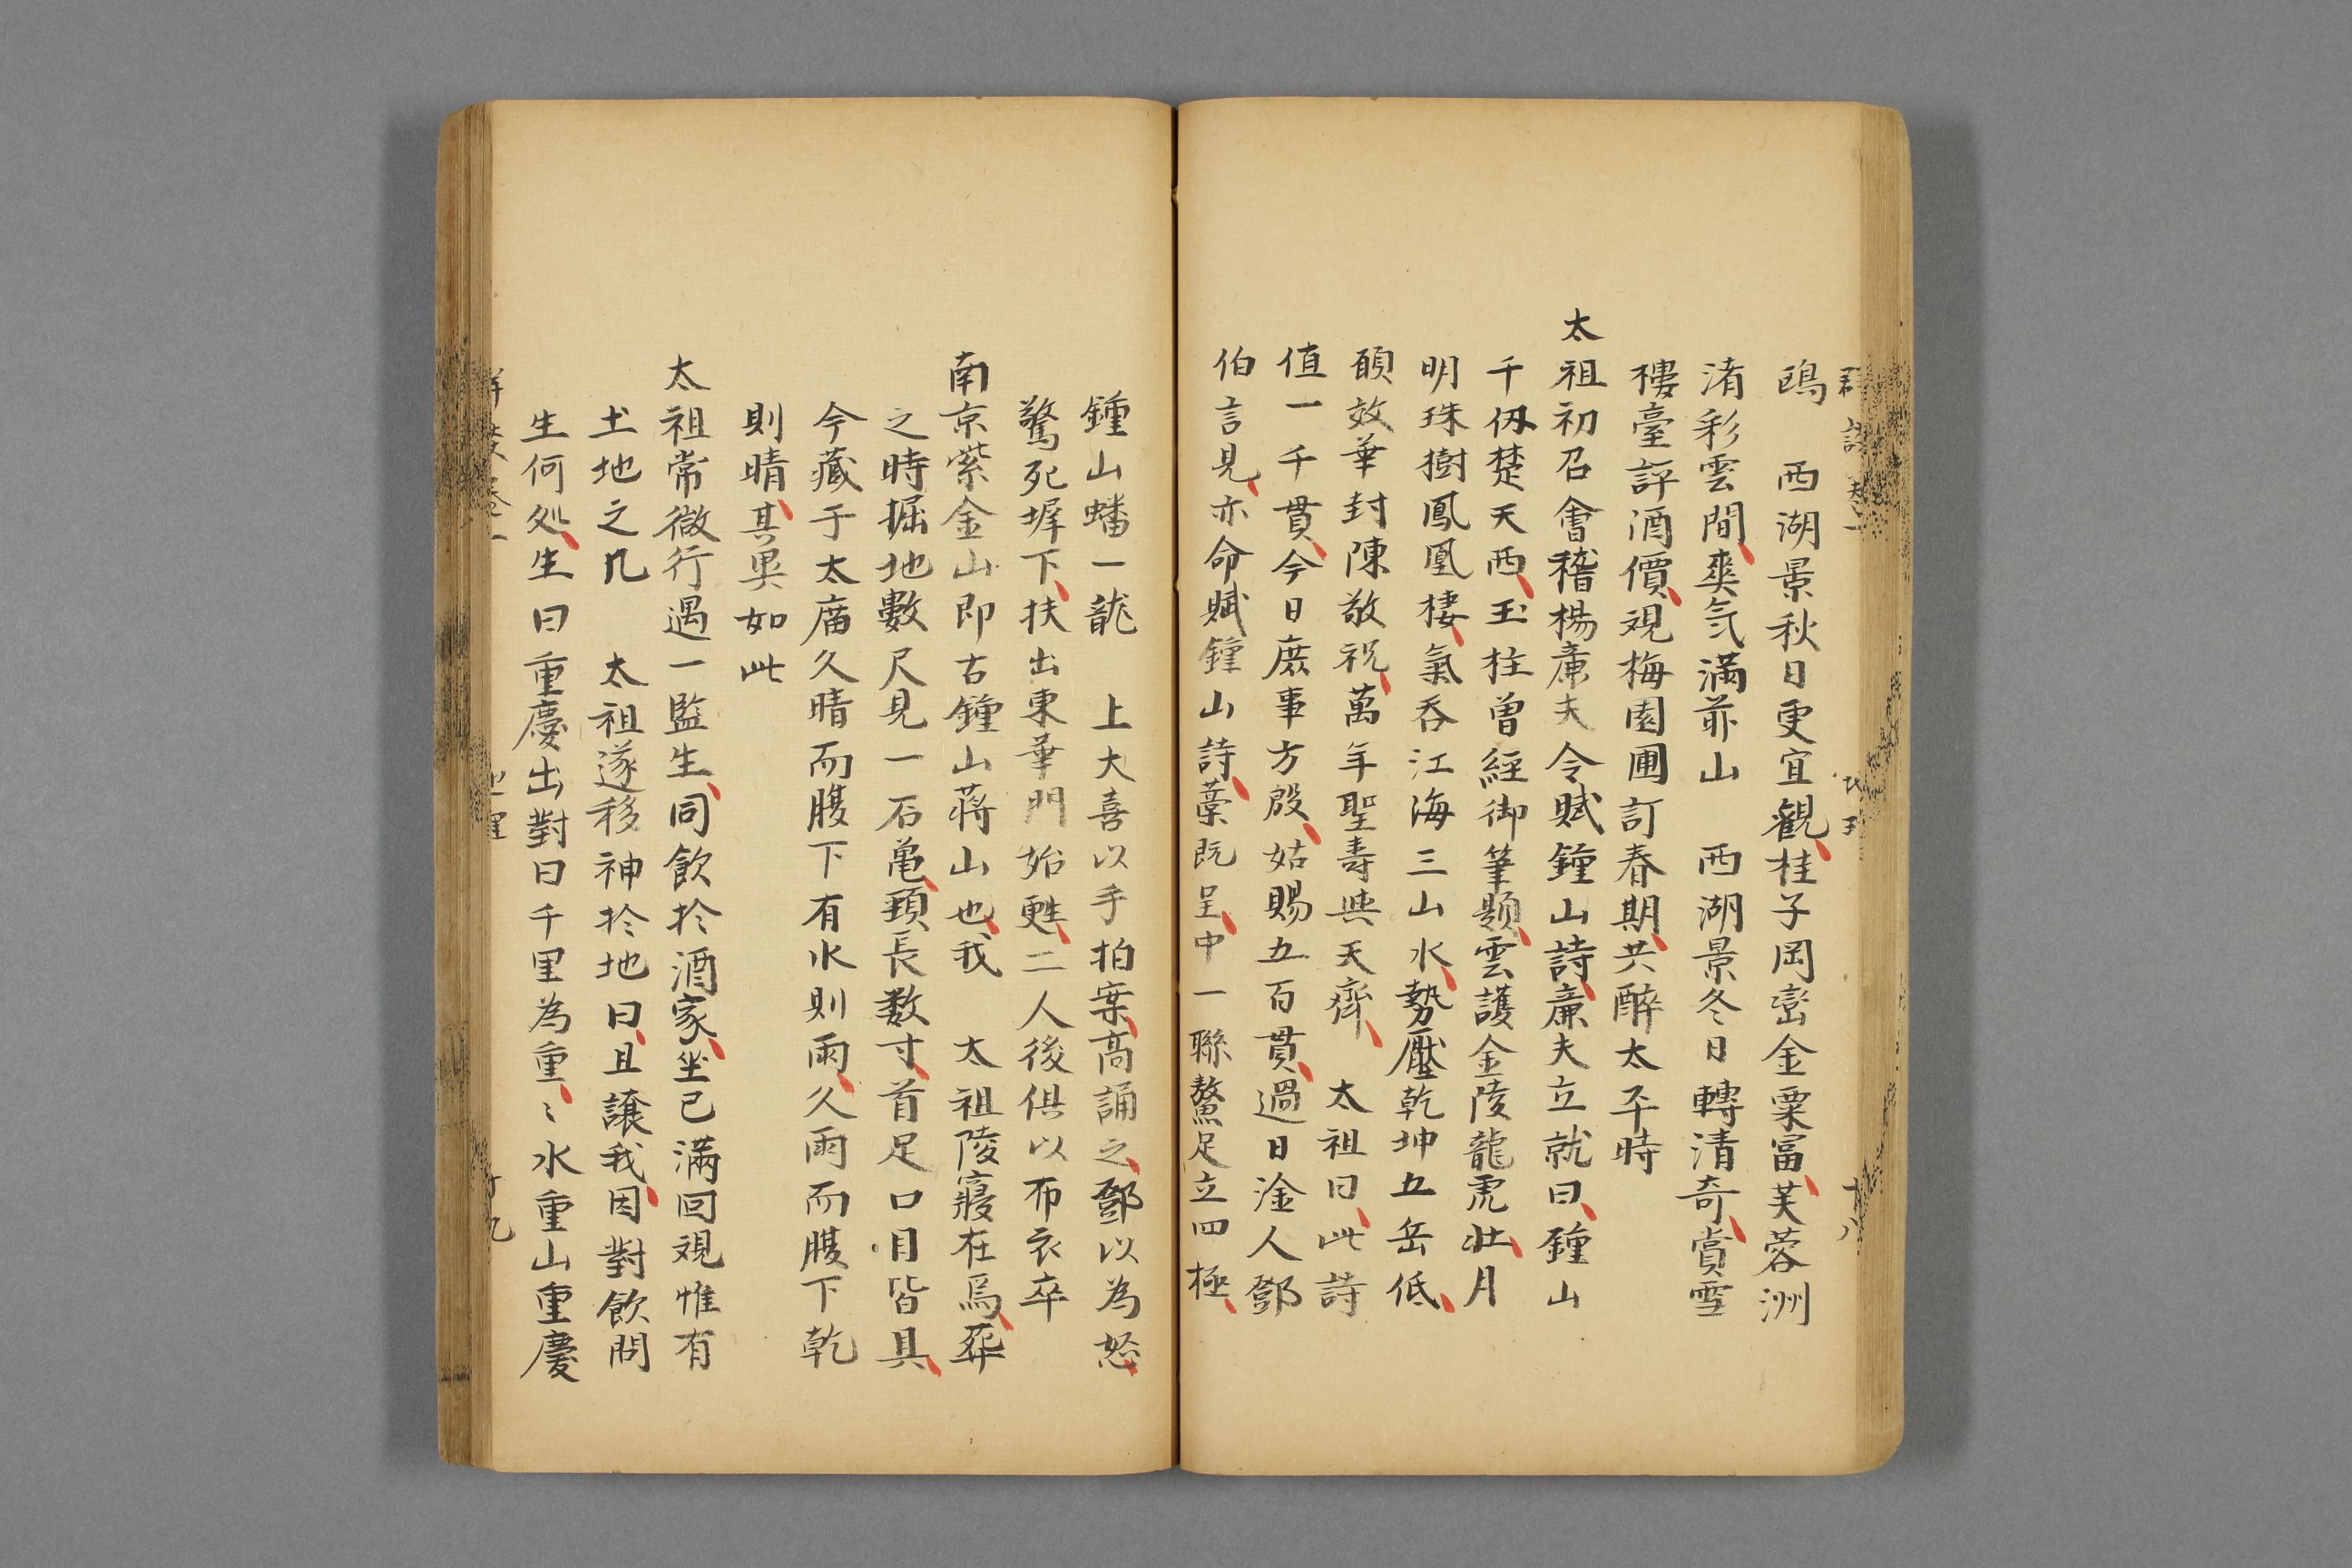 鴎　西湖景秋日更宜觀桂子岡巒金粟富芙蓉洲
渚彩雲間爽氣滿前山　西湖景冬日轉清奇賞雪
樓臺評酒價覌梅園圃訂春期共醉太平時
太祖初召會稽楊廉夫令賦鍾山詩廉夫立就曰鍾山
千仭楚天西玉柱曽經御筆題雲護金陵龍虎壯月
明珠樹鳳凰棲氣吞江海三山水勢壓乾坤五岳低
願效華封陳敬祝萬年聖壽與天齊　太祖曰此詩
值一千貫今日庶事方殷姑賜五百貫過日淦人鄧
伯言見亦命賦鍾山詩藁既呈中一聯鰲足立四極
鍾山蟠一龍　上大喜以手拍案高誦之鄧以為怒
驚死墀下扶出東華門始甦二人後俱以布衣卒
南京紫金山即古鍾山蔣山也我　太祖陵寢在焉葬
之時掘地數尺見一石亀頸長数寸首足口目皆具
今藏于太庙久晴而腹下有水則雨久雨而腹下乾
則晴其異如此
太祖常微行遇一監生同飲於酒家坐已滿回覌惟有
土地之几　太祖遂移神於地曰且讓我因對飲問
生何处生曰重慶出對曰千里為重〻水重山重慶